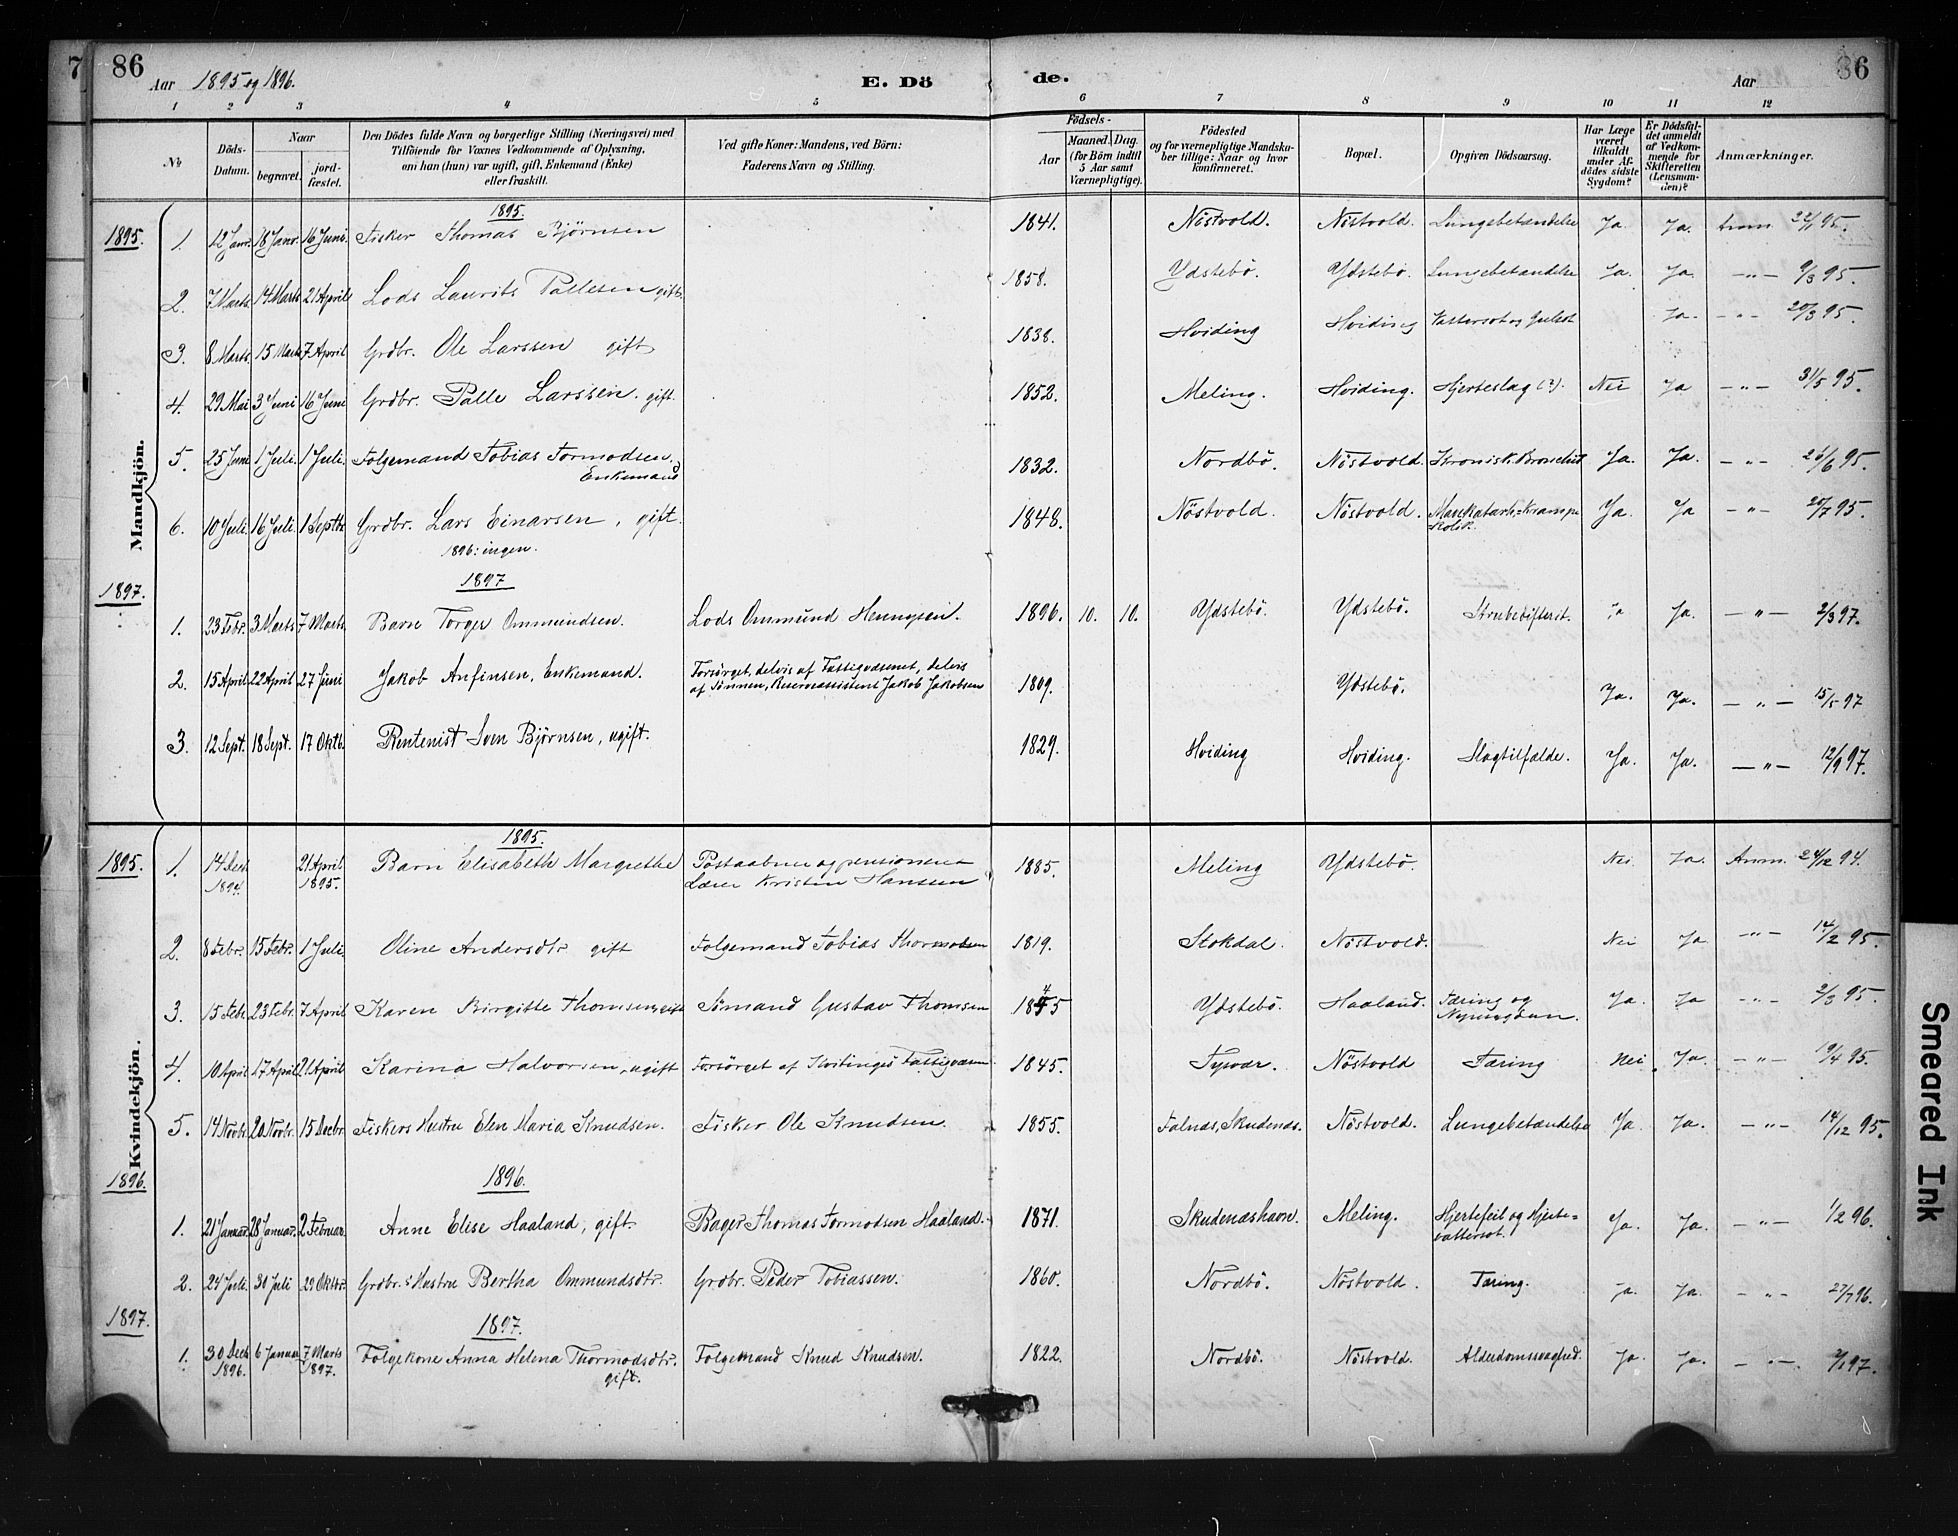 7 86 Aar 1895 og 1896. E. Dö de. Aar 86
1 2 3 4 5 6 7 8 9 10 11 12
No
Döds-Datum.
Naar begravet. jord-fæstet.
Den Dödes fulde Navn og borgerlige Stilling (Næringsvei) med Tilföiende for Voxnes Vedkommende af Oplysning, om han (hun) var ugift, gift, Enkemand (Enke) eller fraskilt.
Ved gifte Koner: Mandens, ved Börn: Faderens Navn og Stilling.
Födsels- Aar Maaned. Dag. (for Börn indtil 5 Aar samt Værnepligtige).
Födested og for værnepligtige Mandskaber tillige: Naar og hvor konfirmeret.
Bopæl.
Opgiven Dödsaarsag.
Har Læge været tilkaldt under Afdödes sidste Sygdom?
Er Dödsfaldet anmeldt af Vedkommende for Skifteretten (Lensmanden)?
Anmærkninger.
Mandkjön.
1895.
1895. 1. 12 Janr. 18 Janr. 16 Juni. Fisker Thomas Bjørnsen 1841. Nöstvold. Nöstvold. Lungebetændelse Ja. Ja. Anm 22/1 95.
2. 7 Marts 14 Marts 21 April Lods Laurits Pallesen gift. 1858. Ydstebö. Ydstebö. Lungebetændelse Ja. Ja. -"- 9/3 95.
3. 8 Marts 15 Marts 7 April Grdbr. Ole Larssen gift 1838. Hviding Hviding Vattersot og Gulsot Ja. -"- 20/3 95.
4. 29 Mai 3 Juni 16 Juni Grdbr. Palle Larssen. gift. 1852. Meling. Hviding. Hjerteslag (?). Nei Ja -"- 31/5 95.
5. 25 Juni 1 Juli. 1 Juli. Folgemand Tobias Tormodsen. Enkemand 1832. Nordbö. Nöstvold. Kronisk Bronchit Ja. Ja. -"- 26/6 95.
6. 10 Juli. 16 Juli. 1 Septb. Grdbr. Lars Einarsen, gift. 1848. Nöstvold. Nöstvold. Kolik. Ja. Ja -"- 20/7 95.
1896: ingen.
1897
1897. 1. 23 Febr. 3 Marts 7 Marts. Barn Torger Ommundsen. Lods Ommund Henrigsen. 1896. 10. 10. Ydstebö. Ydstebö. Strubedifterit. Ja Ja. -"- 2/3 97.
2. 15 April 22 April 27 Juni Jakob Anfinsen, Enkemand. Forsörget, delvis af Fattigvæsenet, delvis af Sönnen, Reserveassistent Jakob Jakobsen 1809. Ydstebö. Ja. Ja. -"- 15/5 97
3. 12 Sept. 18 Sept. 17 Oktb. Rentenist Sven Bjørnsen, ugift. 1829. Hviding Hviding. Slagtilfælde. Ja. Ja. -"- 12/9 97.
Kvindekjön.
1895.
1895. 1. 14 Decb. 1894. 21 April 1895. Barn Elisabeth Margrethe Postaabner og pensioneret Lærer Kristen Hanssen 1885. Meling Ydstebö. Nei Ja. Anm. 24/12 94.
2. 8 Febr. 15 Febr. 1 Juli. Oline Andersdtr gift Folgemand Tobias Thormodsen 1819. Stokdal. Nöstvold. Nei Ja. -"- 14/2 95.
3. 15 Febr. 23 Febr. 7 April Karen Birgitte Thomsen, gift Sömand Gustav Thomsen 1845 Ydstebö. Haaland. Tæring og Nyresygdom. Ja. Ja -"- 2/3 95.
4. 10 April 17 April 21 April Karina Halvorsen, ugift Forsörget af Hvitingsö Fattigvæsen 1845. Tysvær. Nöstvold Tæring Nei Ja. -"- 19/4 95.
5. 14 Novbr. 20 Novbr. 15 Decbr. Fiskers Hustru Elen Maria Knudsen. Fisker Ole Knudsen. 1855. Falnæs, Skudenæs. Nöstvold. Lungebetændelse Ja. Ja. -"- 14/12 95.
1896. 1896.
1. 21 Januar. 28 Januar. 2 Februar. Anne Elise Haaland, gift. Bager Thomas Tormodsen Haaland. 1871. Skudenæshavn. Meling. Hjertefeil og Hjerte=vattersot. Ja. Ja. -"- 1/2 96.
2. 24 Juli. 30 Juli 29 Oktbr. Grdbr.s Hustru Bertha Ommundsdtr. Grdbr. Peder Tobiassen. 1860. Nordbö. Nöstvold. Tæring. Ja. Ja. -"- 27/7 96.
1897. 1897.
1. 30 Decb 1896. 6 Januar 7 Marts 1897. Folgekone Anna Helena Thormodsdtr. gift. Folgemand Knud Knudsen. 1822. Nordbö. Nöstvold. Alderdomssvaghed. Ja. Ja. -"-
Smeared Ink